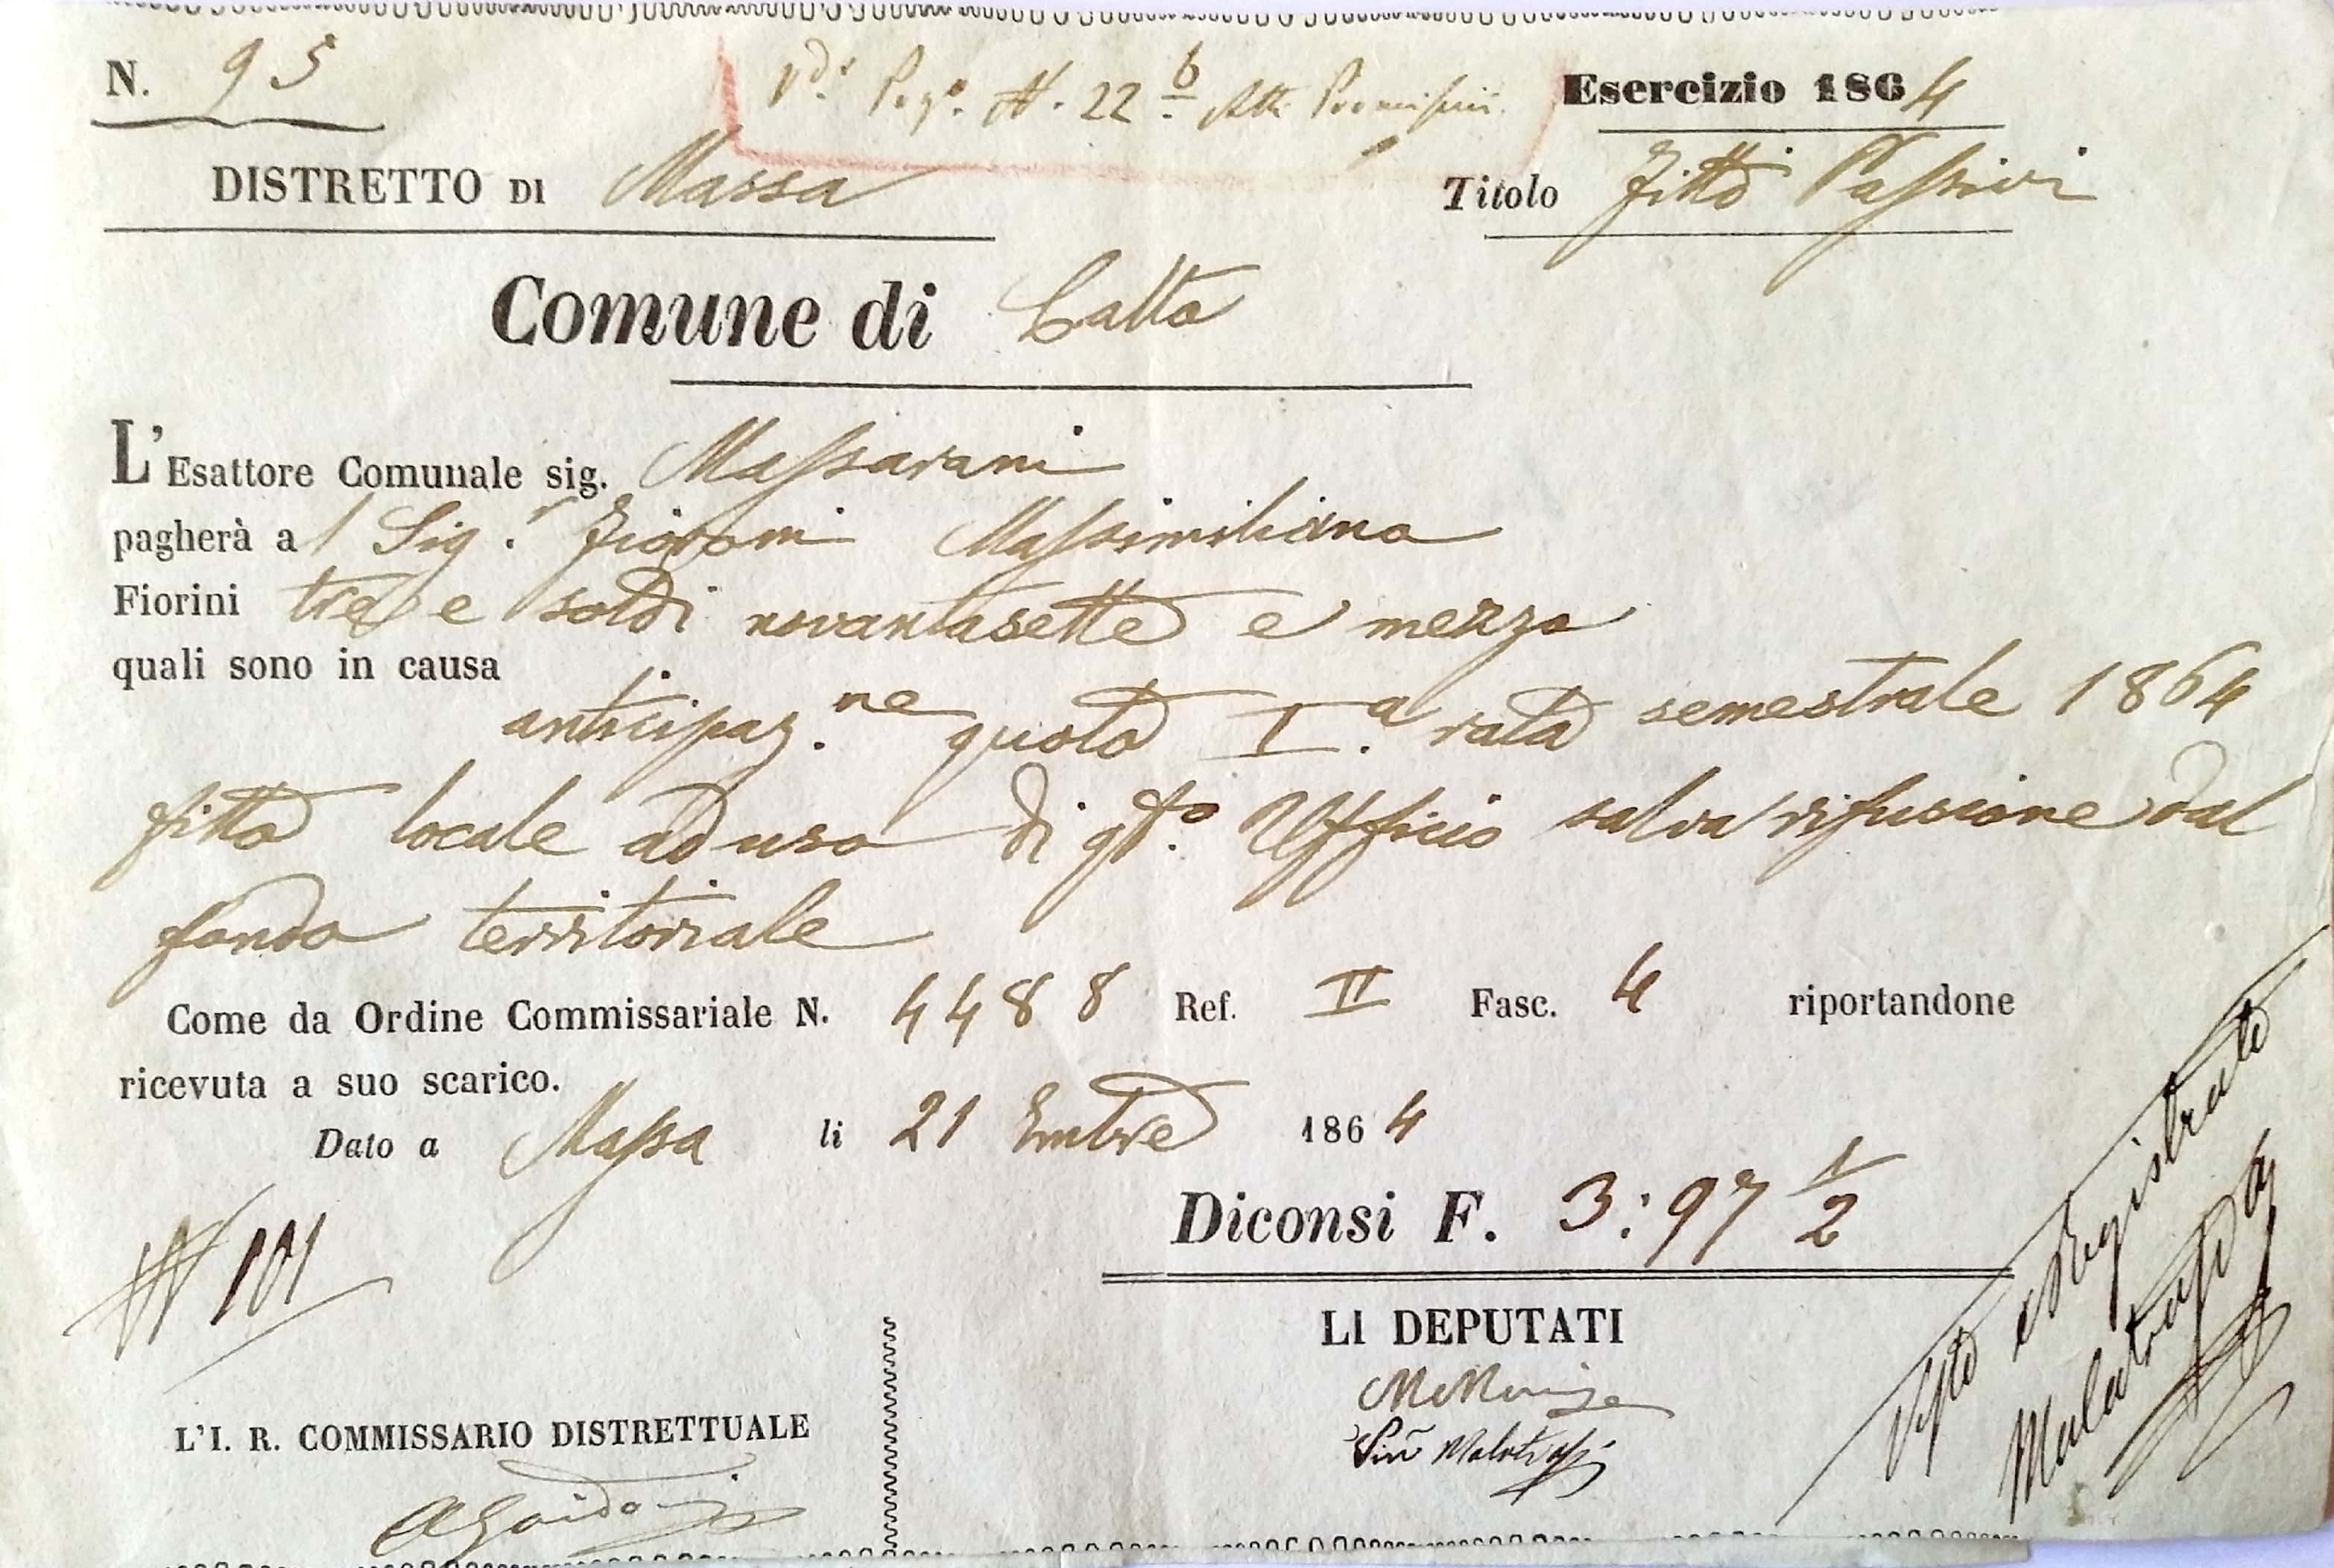 N. 95
N. 22 b Atti Promiscui
Esercizio 1864
DISTRETTO DI Massa
Titolo Fitti Passivi
Comune di Calto
L'Esattore Comunale sig. Massarani
pagherà al Sig.r Fioroni Massimiliano
Fiorini tre e soldi novantasette e mezzo
quali sono in causa
anticipaz.ne quoto I.a rata semestrale 1864
fitto locale ad uso di qto. Ufficio salva rifusione dal
fondo territoriale
Come da Ordine Commissariale N. 4488 Ref. II Fasc. 4 riportandone
ricevuta a suo scarico.
Dato a Massa li 21 1864
N 101
Diconsi F. 3:97 1/2
LI DEPUTATI
L'I. R. COMMISSARIO DISTRETTUALE
Visto e Registrato